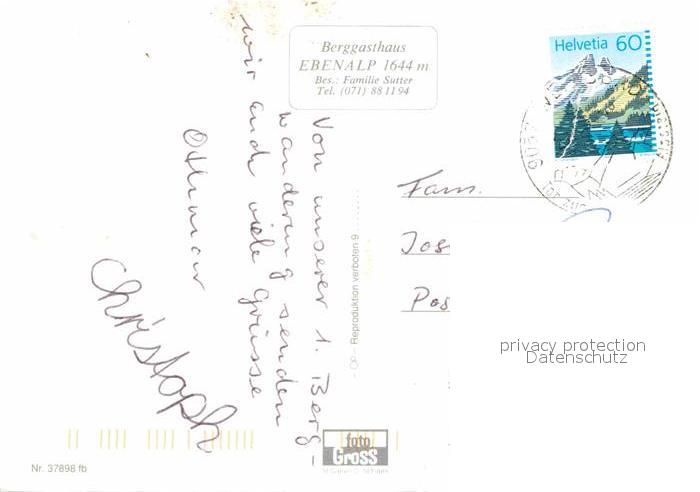 Berggasthaus
EBENALP 1644 m
Bes.: Familie Sutter
Tel. (071) 88 11 94
Helvetia 60
Von unserer 1. Berg-
wanderung senden
wir euch viele Grüsse
Othmar
Christoph
Fam.
Jos
Pos
Reproduktion verboten 9
privacy protection
Datenschutz
foto
GROSS
Nr. 37898 fb